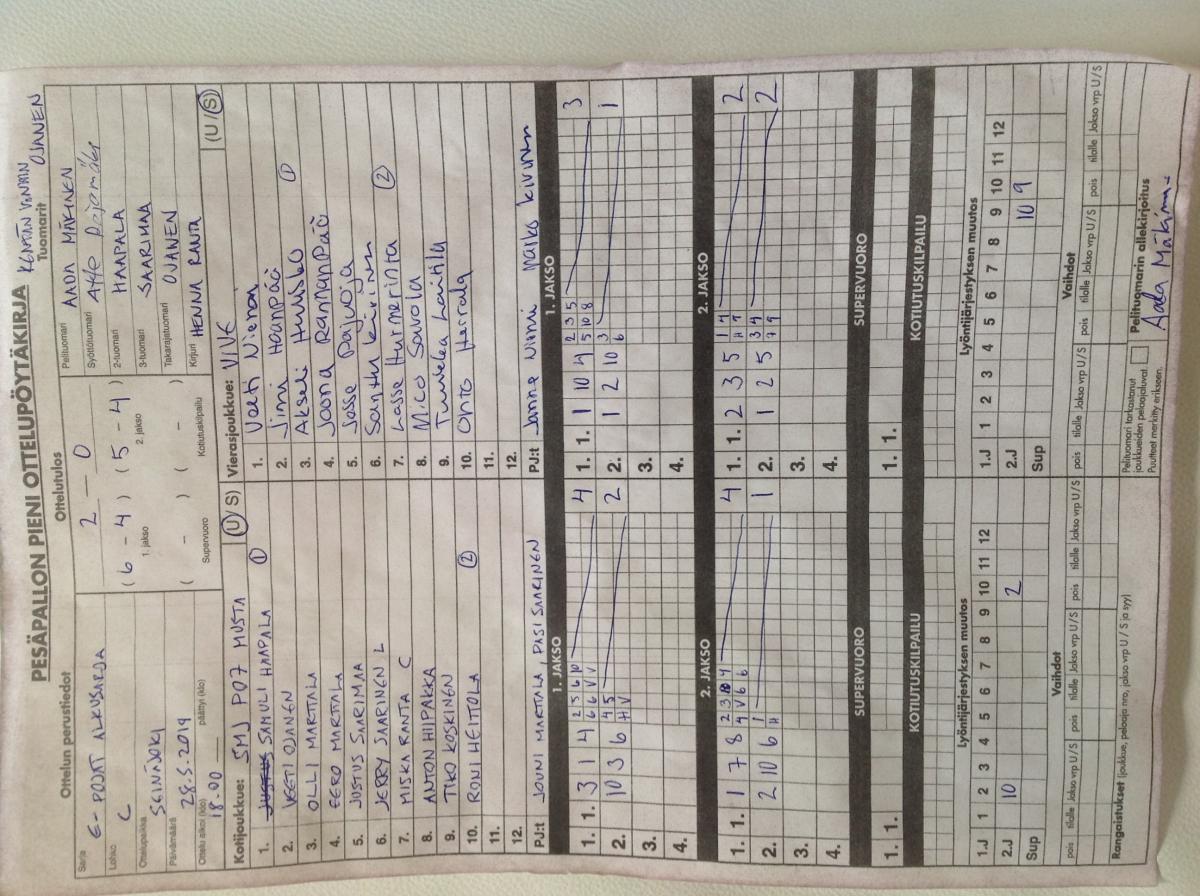 PESÄPALLON PIENI OTTELUPÖYTÄKIRJA
KENTÄN VENHÄN OJANEN
Ottelun perustiedot
Sarja E-POJAT ALKUSARJA
Lohko C
Ottelupaikka SEINÄJOKI
Päivämäärä 28.5.2014
Ottelu alkoi (klo) 18.00 päättyi (klo)
Ottelutulos
2 - 0
( 6 - 4 ) ( 5 - 4 )
1. jakso 2. jakso
( - ) ( - )
Supervuoro Kotiutuskilpailu
Tuomarit
Pelituomari AADA MÄKINEN
Syöttötuomari Atte Pajamäki
2-tuomari HAAPALA
3-tuomari SAARIMAA
Takarajatuomari OJANEN
Kirjuri HENNA RANTA
Kotijoukkue: SMJ P07 MUSTA (U/S)
1. SAMULI HAAPALA 1
2. VEETI OJANEN
3. OLLI MARTTALA
4. EERO MARTTALA
5. JUSTUS SAARIMAA
6. JERRY SAARINEN L
7. MISKA RANTA C
8. ANTON HIIPAKKA
9. TIKO KOSKINEN
10. RONI HEITOLA 2
11.
12.
PJ:t JOUNI MARTTALA, PASI SAARINEN
Vierasjoukkue: ViVe (U/S)
1. Veeti Nieminen
2. Jimi Haanpää 1
3. Akseli Huhtala
4. Joona Rannanpää
5. Jesse Pajuoja
6. Santtu Kivinen 2
7. Lasse Hurmerinta
8. Nico Savola
9. Tuukka Laitila
10. Ohto Harrala
11.
12.
PJ:t Janne Niemi Marko Kivinen
1. JAKSO
1. 1. 3 1 4 1 2 5 6 10 6 6 V V 4
2. 10 3 6 4 5 H V 2
3.
4.
1. JAKSO
1. 1. 1 10 4 2 3 5 5 10 8 3
2. 1 2 10 3 6 1
3.
4.
2. JAKSO
1. 1. 1 7 8 2 3 10 4 4 V 6 6 4
2. 2 10 6 1 H 1
3.
4.
2. JAKSO
1. 1. 2 3 5 1 4 H 7 2
2. 1 2 5 3 4 7 9 2
3.
4.
SUPERVUORO
1. 1.
SUPERVUORO
1. 1.
KOTIUTUSKILPAILU
KOTIUTUSKILPAILU
Lyöntijärjestyksen muutos
1.J 1 2 3 4 5 6 7 8 9 10 11 12
2.J 10 2
Sup
Lyöntijärjestyksen muutos
1.J 1 2 3 4 5 6 7 8 9 10 11 12
2.J 10 9
Sup
Vaihdot
pois tilalle Jakso vrp U/S pois tilalle Jakso vrp U/S pois tilalle Jakso vrp U/S
Vaihdot
pois tilalle Jakso vrp U/S pois tilalle Jakso vrp U/S pois tilalle Jakso vrp U/S
Rangaistukset (joukkue, pelaaja nro, jakso vrp U / S ja syy)
Pelituomari tarkastanut joukkueiden pelaajaluvat
Puutteet merkitty erikseen.
Pelituomarin allekirjoitus
Aada Mäkinen